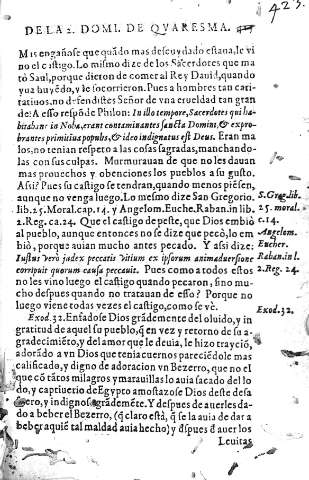 DE LA 2. DOMI. DE QVARESMA.
423.
Mis engañose que quãdo mas descuydado estaua, le vi
no el castigo. Lo mismo dize de los Sacerdotes que ma
tó Saul, porque dieron de comer al Rey Dauid, quando
yua huyẽdo, y le socorrieron. Pues a hombres tan cari-
tatiuos, no defendistes Señor de vna crueldad tan gran
de: A esso respõde Philon: In illo tempore, Sacerdotes qui ha
bitabant in Nobæ, erant contaminantes sancta Domini, & expro-
brantes primitias populi, & ideo indignatus est Deus. Eran ma
los, no tenian respeto a las cosas sagradas, manchando-
las con sus culpas. Murmurauan de que no les dauan
mas prouechos y obenciones los pueblos a su gusto.
Assi? Pues su castigo se tendran, quando menos piẽsen,
aunque no venga luego. Lo mesmo dize San Gregorio
lib. 25. Moral. cap. 14. y Angelom. Euche. Raban. in lib.
2. Reg. ca. 24. Que el castigo de peste, que Dios embió
al pueblo, aunque entonces no se dize que pecò, lo em
biò, porque auian mucho antes pecado. Y assi dize:
Iustus verò iudex peccatis vitium ex ipsorum animaduersione
corripuit quorum causa peccauit. Pues como a todos estos
no les vino luego el castigo quando pecaron, sino mu
cho despues quando no tratauan de esso? Porque no
luego viene todas vezes el castigo, como se vè.
Exod. 32. Enfadose Dios grãdemente del oluido, y in
gratitud de aquel su pueblo, q̃ en vez y retorno de su a-
gradecimiẽto, y del amor que le deuia, le hizo trayciõ,
adorãdo a vn Dios que tenia cuernos pareciẽdole mas
calificado, y digno de adoracion vn Bezerro, que no el
que cõ tãtos milagros y marauillas lo auia sacado del lo
do, y captiuerio de Egypto amostazose Dios deste desa
fuero, y indignose grãdemẽte. Y despues de auerles da-
do a beber el Bezerro, (q̃ claro està, q̃ se la auia de dar a
beber a quiẽ tal maldad auia hecho) y d̃spues d̃ auer los
Leuitas
S. Greg. lib.
25. moral.
c. 14.
Angelom.
Eucher.
Raban. in l.
2. Reg. 24.
Exod. 32.